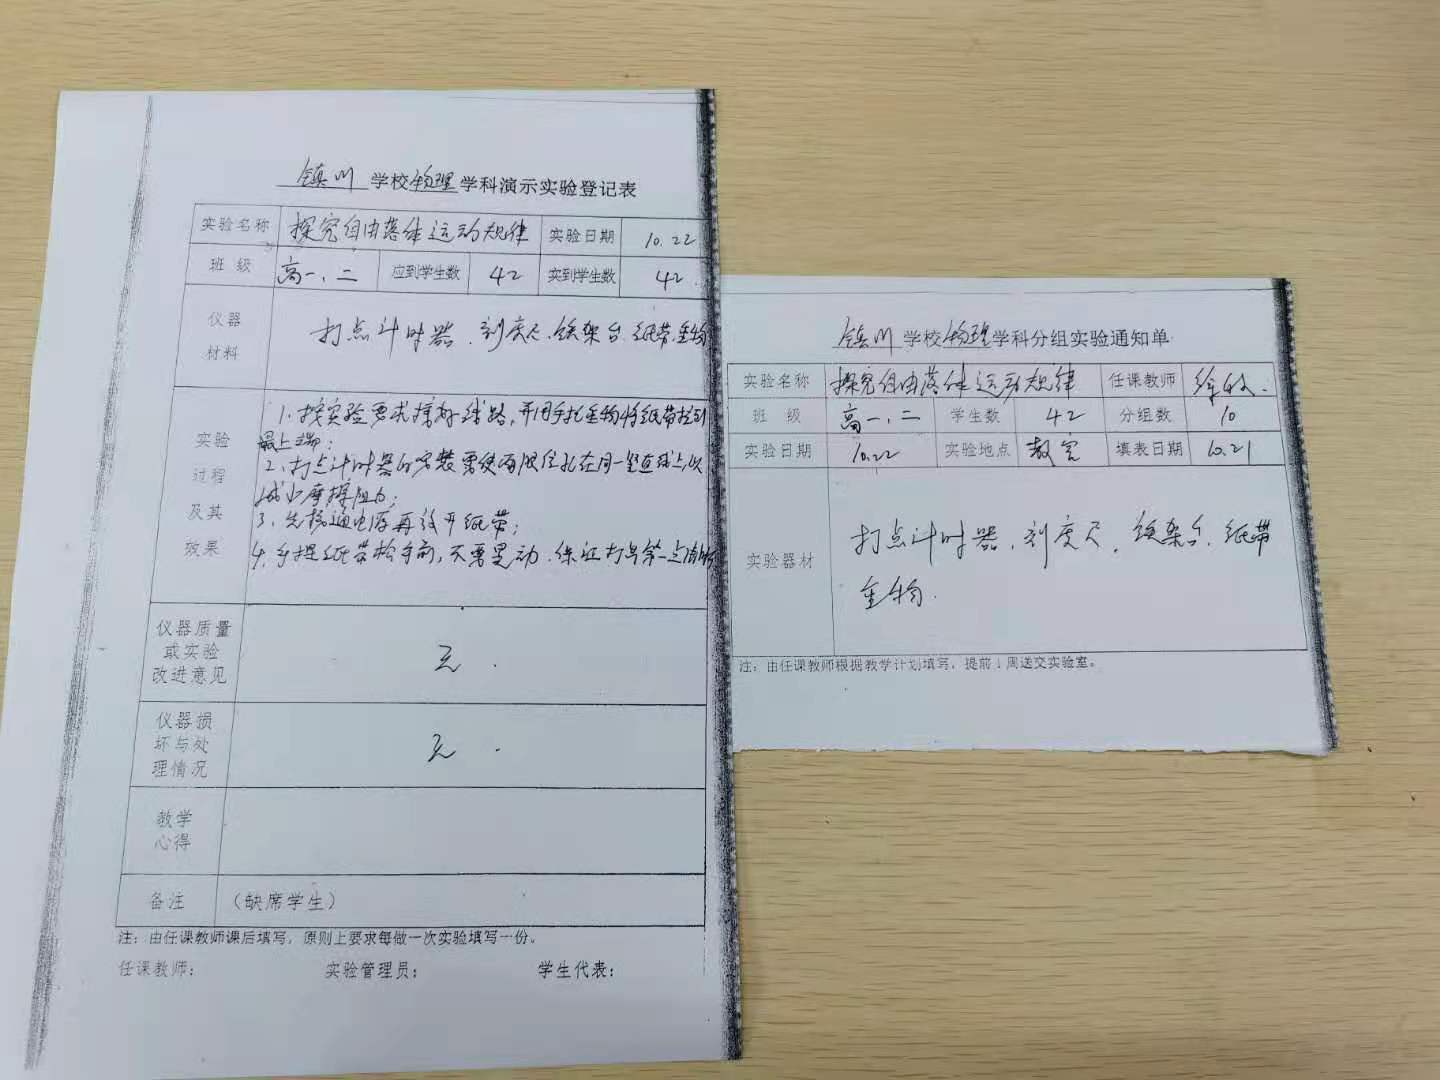 镇川 学校 物理 学科演示实验登记表
实验名称 探究自由落体运动规律 实验日期 10.22
班 级 高一、二 应到学生数 42 实到学生数 42
仪器材料 打点计时器、刻度尺、铁架台、纸带、重物
实验过程及其效果
1、按实验要求接好线路，并用手托重物将纸带拉到
最上端；
2、打点计时器的安装需使两限位孔在同一竖直线上，以
减小摩擦阻力；
3、先接通电源再放开纸带；
4、手提纸带松手前，不要晃动，保证打出第一点清晰
仪器质量或实验改进意见 无.
仪器损坏与处理情况 无.
教学心得
备注 （缺席学生）
注：由任课教师课后填写，原则上要求每做一次实验填写一份。
任课教师： 实验管理员： 学生代表：
镇川 学校 物理 学科分组实验通知单
实验名称 探究自由落体运动规律 任课教师 徐
班 级 高一、二 学生数 42 分组数 10
实验日期 10.22 实验地点 教室 填表日期 10.21
实验器材 打点计时器、刻度尺、铁架台、纸带
重物.
注：由任课教师根据教学计划填写，提前1周送交实验室。